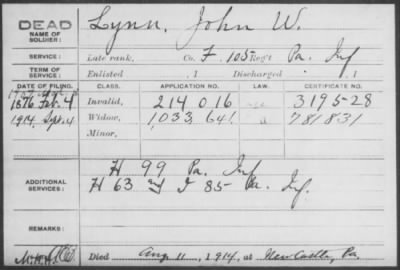 DEAD
NAME OF SOLDIER: Lynn, John W.
SERVICE: Late rank, Co. F. 105 Reg't Pa. Inf
TERM OF SERVICE: Enlisted , 1 Discharged , 1
DATE OF FILING. CLASS. APPLICATION NO. LAW. CERTIFICATE NO.
1876 Feb. 4 Invalid, 214016 319528
1914, Sept. 4 Widow, 1,033,641 781831
Minor,
ADDITIONAL SERVICES: H 99 Pa. Inf
H 63 and I 85 Pa. Inf.
REMARKS:
Died Aug 11, 1914, at New Castle, Pa.